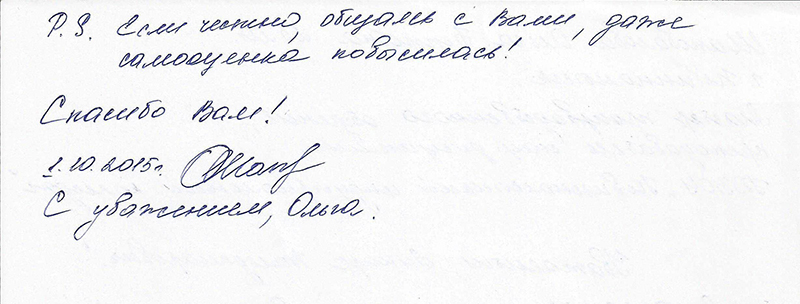 P.S. Если честно, общаясь с Вами, даже
самооценка повысилась!
Спасибо Вам!
1.10.2015г.
С уважением, Ольга.